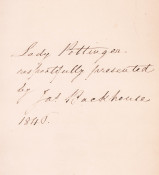 Lady Pottinger.
respectfully presented
by Jas Backhouse
1845.